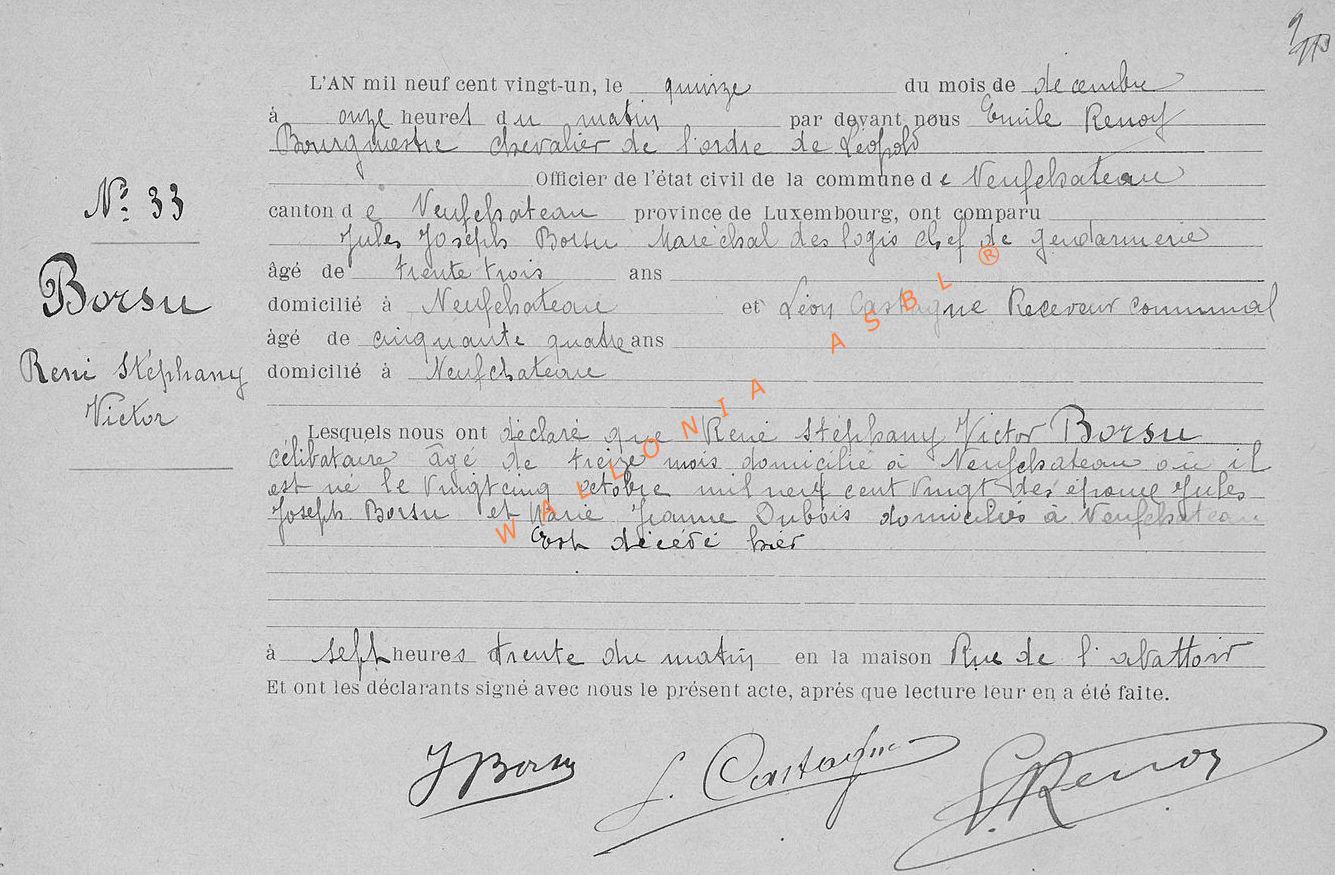 L'AN mil neuf cent vingt-un, le quinze du mois de décembre
à onze heures du matin par devant nous Emile Renoy
Bourgmestre chevalier de l'ordre de Léopold
Officier de l'état civil de la commune de Neufchateau
Nº 33
canton de Neufchateau province de Luxembourg, ont comparu
Jules Joseph Borsu Maréchal des logis chef de gendarmerie
âgé de trente trois ans
Borsu
domicilié à Neufchateau et Léon Castagne Receveur communal
âgé de cinquante quatre ans
René Stéphany
domicilié à Neufchateau
Victor
Lesquels nous ont déclaré que René Stéphany Victor Borsu
célibataire âgé de treize mois domicilié à Neufchateau où il
est né le vingt cinq octobre mil neuf cent vingt des époux Jules
Joseph Borsu et Marie Jeanne Dubois domiciliés à Neufchateau
est décédé hier
à sept heures trente du matin en la maison Rue de l'abattoir
Et ont les déclarants signé avec nous le présent acte, après que lecture leur en a été faite.
J Borsu L. Castagne E. Renoy
WALLONIA ASBL ®